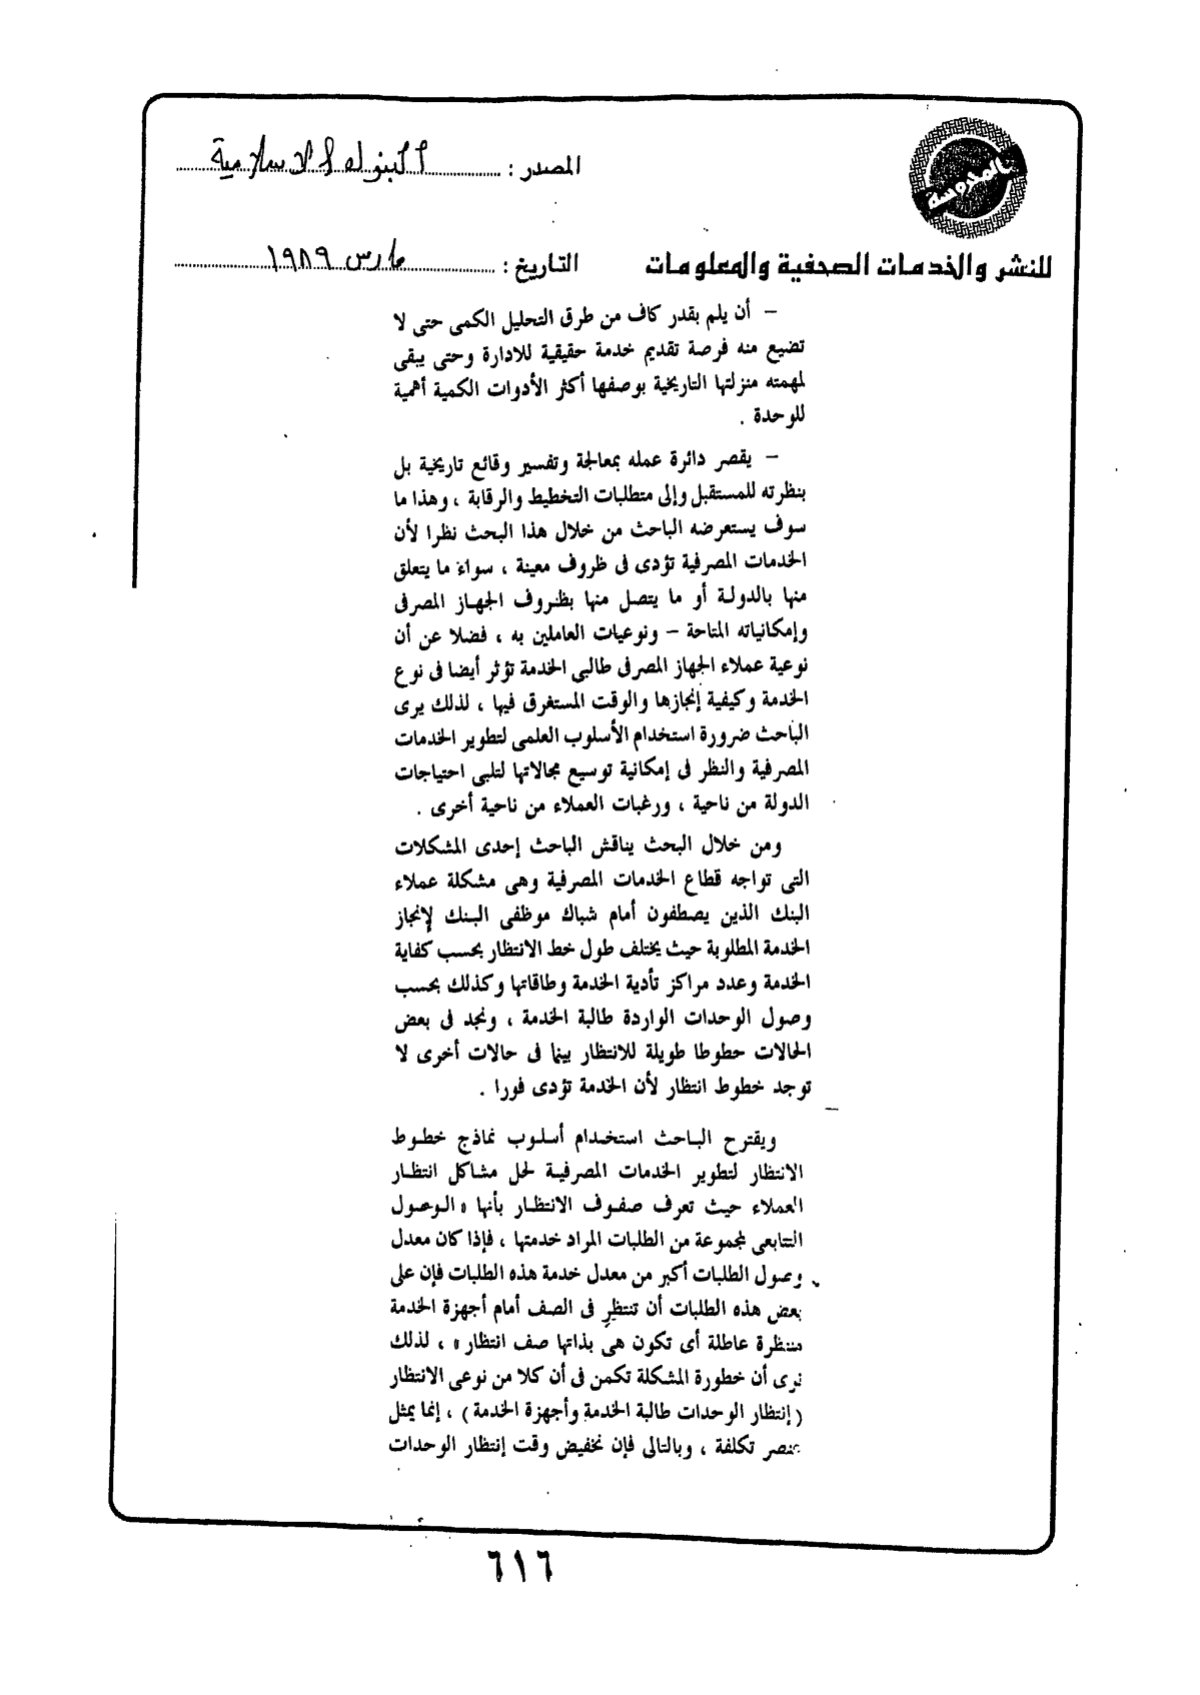 المصدر : البنوك الاسلامية
للنشر والخدمات الصحفية والمعلومات
التاريخ : مارس ١٩٨٩
– أن يلم بقدر كاف من طرق التحليل الكمى حتى لا
تضيع منه فرصة تقديم خدمة حقيقية للادارة وحتى يبقى
لمهمته منزلتها التاريخية بوصفها أكثر الأدوات الكمية أهمية
للوحدة .
– يقصر دائرة عمله بمعالجة وتفسير وقائع تاريخية بل
بنظرته للمستقبل وإلى متطلبات التخطيط والرقابة ، وهذا ما
سوف يستعرضه الباحث من خلال هذا البحث نظرا لأن
الخدمات المصرفية تؤدى فى ظروف معينة ، سواء ما يتعلق
منها بالدولة أو ما يتصل منها بظروف الجهاز المصرفى
وإمكانياته المتاحة – ونوعيات العاملين به ، فضلا عن أن
نوعية عملاء الجهاز المصرفى طالبي الخدمة تؤثر أيضا فى نوع
الخدمة وكيفية إنجازها والوقت المستغرق فيها ، لذلك يرى
الباحث ضرورة استخدام الأسلوب العلمى لتطوير الخدمات
المصرفية والنظر فى إمكانية توسيع مجالاتها لتلبى احتياجات
الدولة من ناحية ، ورغبات العملاء من ناحية أخرى .
ومن خلال البحث يناقش الباحث إحدى المشكلات
التى تواجه قطاع الخدمات المصرفية وهى مشكلة عملاء
البنك الذين يصطفون أمام شباك موظفى البنك لإنجاز
الخدمة المطلوبة حيث يختلف طول خط الانتظار بحسب كفاية
الخدمة وعدد مراكز تأدية الخدمة وطاقاتها وكذلك بحسب
وصول الوحدات الواردة طالبة الخدمة ، ونجد فى بعض
الحالات حطوطا طويلة للانتظار بينما فى حالات أخرى لا
توجد خطوط انتظار لأن الخدمة تؤدى فورا .
ويقترح الباحث استخدام أسلوب نماذج خطوط
الانتظار لتطوير الخدمات المصرفية لحل مشاكل انتظار
العملاء حيث تعرف صفوف الانتظار بأنها « الوصول
التتابعى لمجموعة من الطلبات المراد خدمتها ، فإذا كان معدل
وصول الطلبات أكبر من معدل خدمة هذه الطلبات فإن على
بعض هذه الطلبات أن تنتظر فى الصف أمام أجهزة الخدمة
منتظرة عاطلة أى تكون هى بذاتها صف انتظار » ، لذلك
نرى أن خطورة المشكلة تكمن فى أن كلا من نوعى الانتظار
( إنتظار الوحدات طالبة الخدمة وأجهزة الخدمة ) ، إنما يمثل
عنصر تكلفة ، وبالتالى فإن تخفيض وقت إنتظار الوحدات
٦١٦